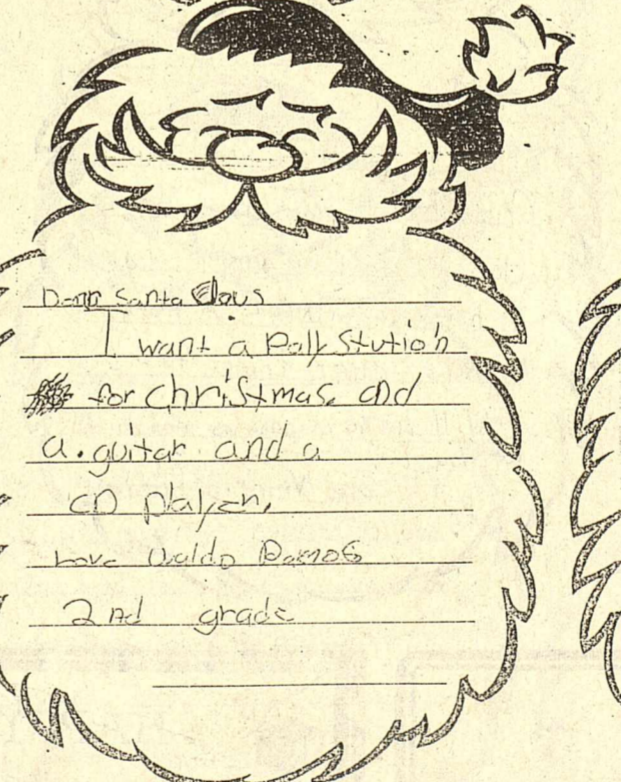 Dear Santa Claus
I want a Pally Stution
for christmas. and
a. guitar and a
CD Player,
Love Ubaldo Ramos
2nd grade